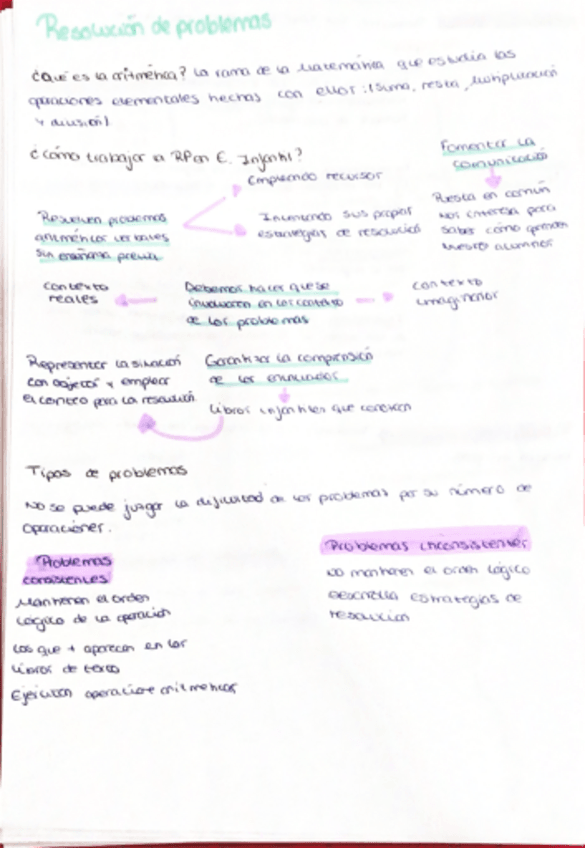 Resolución de problemas
¿Qué es la aritmética? La rama de la Matemática que estudia las
operaciones elementales hechas con ellos: (Suma, resta, Multiplicación
y división)
¿Cómo trabajar la RP en E. Infantil?
Fomentar la
comunicación
Empleando recursos
Resuelven problemas
aritméticos verbales
sin enseñanza previa
Inventando sus propias
estrategias de resolución
Puesta en común
Nos interesa para
saber cómo
nuestro alumnos
contexto
reales
Debemos hacer que se
involucren en los contexto
de los problemas
contexto
imaginarios
Representar la situación
con objetos y emplear
el conteo para la resolución
Garantizar la comprensión
de los enunciados
Libros infantiles que conozcan
Tipos de problemas
No se puede juzgar la dificultad de los problemas por su número de
operaciones.
Problemas
consistentes
Mantienen el orden
Lógico de la operación
Los que + aparecen en los
libros de texto
Ejercitan aritméticas
Problemas inconsistentes
No mantienen el orden lógico
Desarrolla estrategias de
resolución